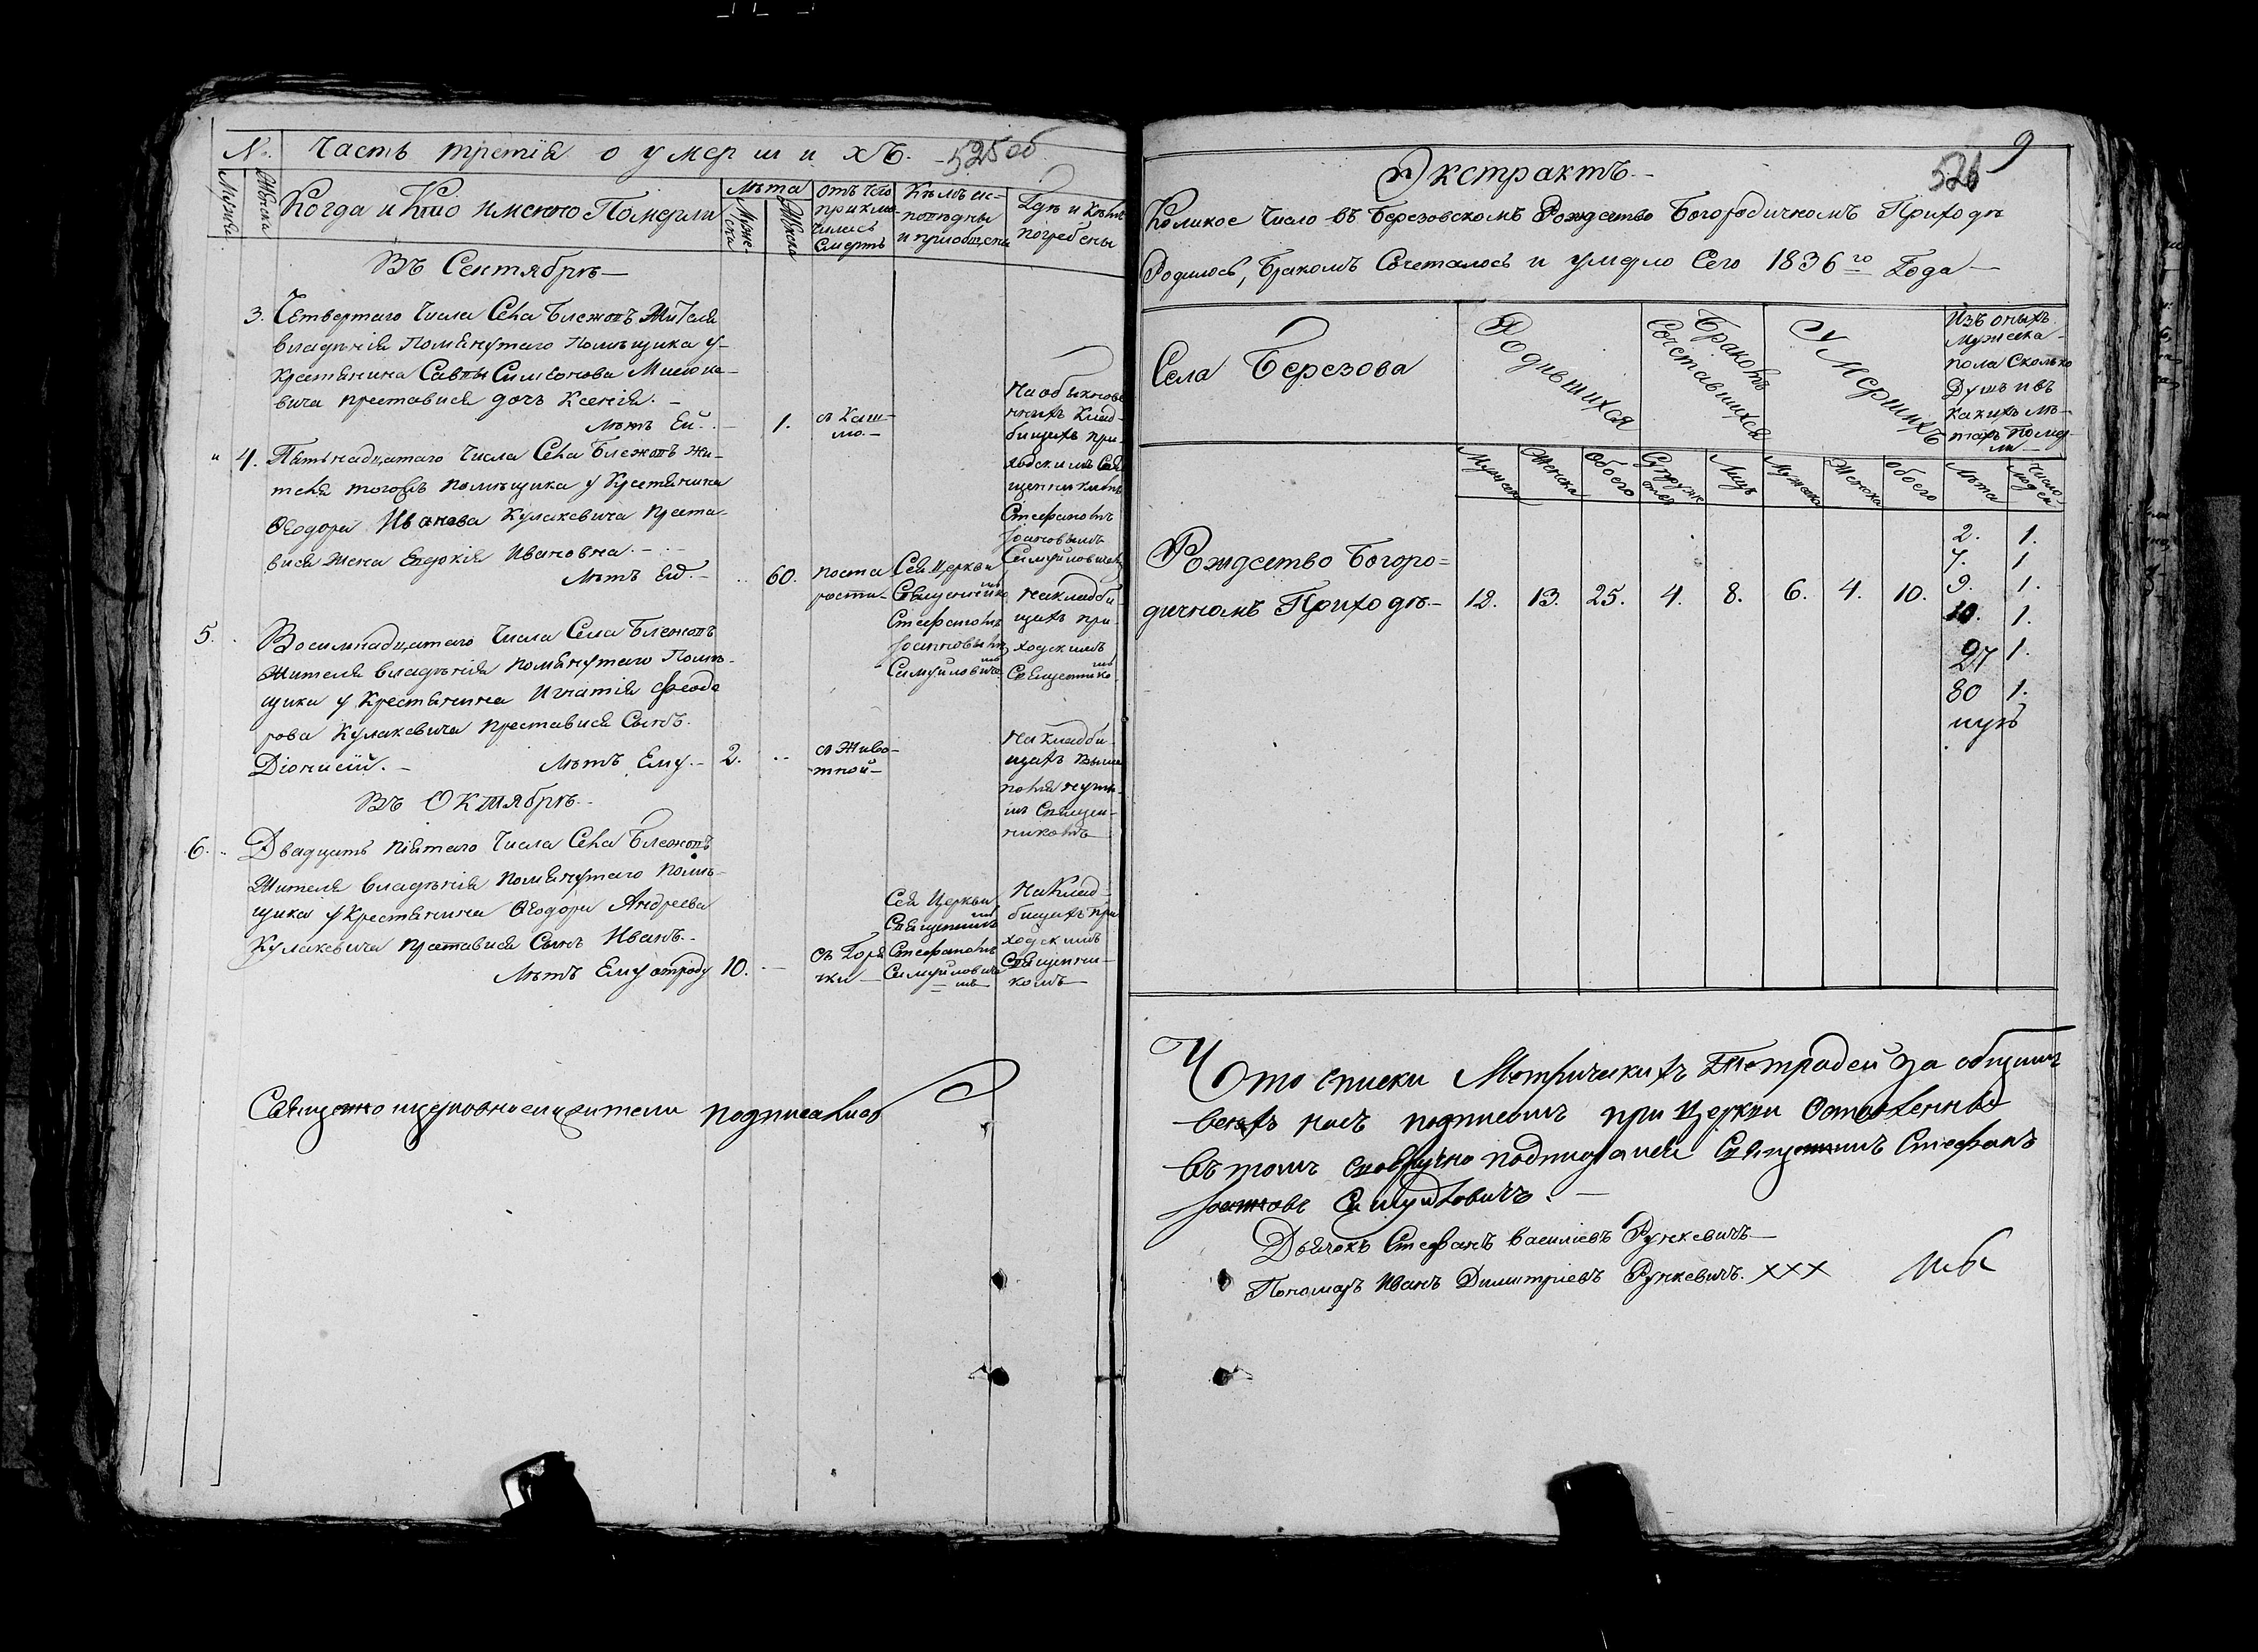 №. Часть третія о умершихъ. 525 об
Мужеска Женска Когда и Кто имянно Померли Лѣта Мужеска Женска Отъ чего приключилась Смерть Кѣмъ исповѣданы и приобщены Гдѣ и Кѣмъ погребены
Въ Сентябрѣ
3. Четвертаго Числа Села Блежопъ Жителя
владѣнія Помянутаго Помѣщика у
Крестянина Саввы Симеонова
вича преставися дочъ Ксенія.
Лѣтъ Ей. 1.
съ Каш-
лю.
На обыкнове
нныхъ Клад-
бищахъ при-
ходскимъ Свя
щенникомъ
Стефаномъ
Іоановымъ
Самуйловичемъ
" 4. Пятьнадцатаго Числа Села Блежопъ Жи-
теля тогожъ помѣщика у Крестянина
Ѳеодора Иванова Кулакевича Преста-
вися Жена Евдокія Ивановна.
Лѣтъ Ей. 60.
поста
рости
Сея Церкви
Священнико
мъ
Стефаномъ
Іоанновымъ
Самуйловиче
мъ
На кладби-
щахъ при-
ходскимъ
Священнико
мъ
5. Восемнадцатаго Числа Села Блежопъ
Жителя владѣнія помянутаго Помѣ-
щика у Крестянина Игнатія Феодо
рова Кулакевича преставися Сынъ
Діонисій. Лѣтъ Ему. 2.
съ Живо-
тной
На Кладби-
щахъ выше
помянуты-
мъ Священ-
никомъ
Въ Октябрѣ
6. Двадцать пятаго Числа Села Блежопъ
Жителя владѣнія помянутаго помѣ-
щика у Крестянина Ѳеодора Андреева
Кулакевича преставися Сынъ Иванъ.
Лѣтъ Ему отроду 10.
Съ Горя
чки
Сея Церкви
Священник
мъ
Стефаномъ
Самуйловиче
мъ
На Клад-
бищахъ при
ходскимъ
Священни-
комъ
Священно ицерковнослужители подписались
9
526
Экстрактъ.
Коликое Число въ Березовскомъ Рождество Богородичномъ Приходѣ
Родилось, Бракомъ Сочеталось и умерло Сего 1836го Года
Села Березова Родившихся Бракомъ Сочетавшихся Умершихъ
Изъ оныхъ
Мужеска
пола Сколько
Душъ и въ
какихъ лѣ-
тахъ Помер-
ли
Мужеска Женска Обоего Супруже ствъ Лицъ Мужеска Женска Обоего Лѣта Число людей
Рождество Богоро=
дичномъ Приходѣ. 12. 13. 25. 4. 8. 6. 4. 10.
2. 1.
7. 1
9. 1.
10. 1.
27 1.
80 1.
Что списки Метрическихъ Тетрадей за общимъ
всѣхъ насъ подписомъ при Церкви Оставленны
въ томъ своеручно подписуемся Священникъ Стефанъ
Іоанновъ Самуйловичъ.
Дьячокъ Стефанъ Василіевъ Рункевичъ
Пономарь Иванъ Димитріевъ Рункевичъ. ххх